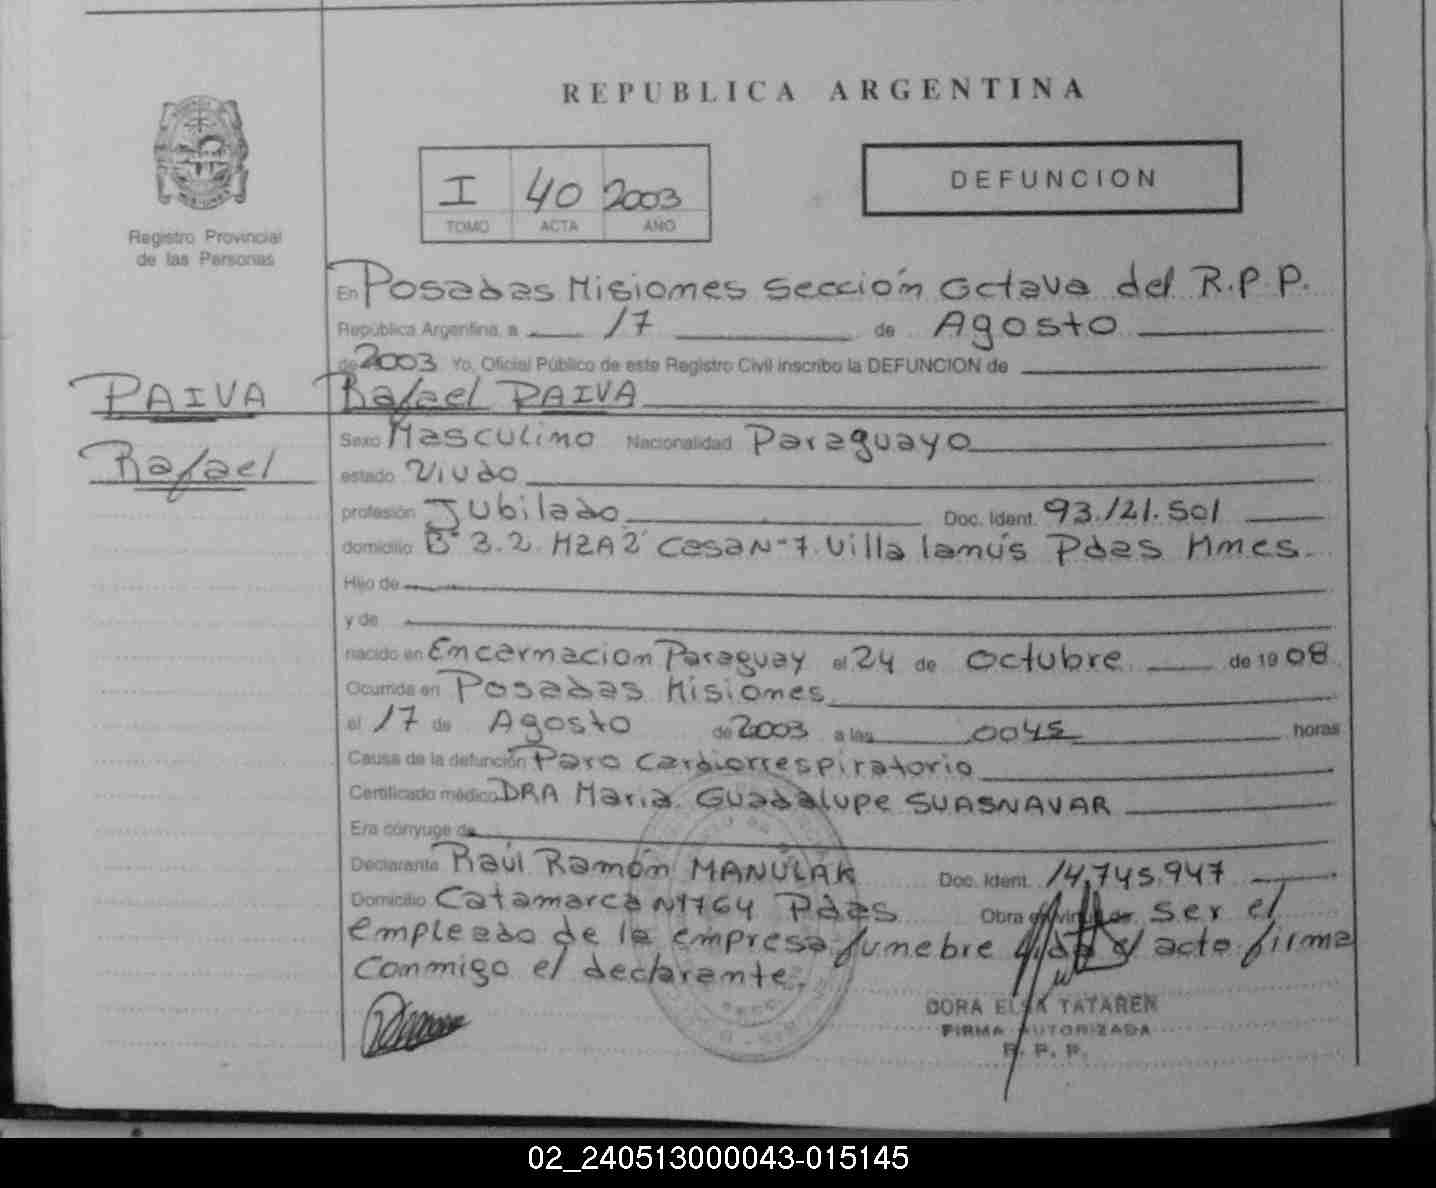 REPUBLICA ARGENTINA
I 40 2003
TOMO ACTA AÑO
DEFUNCION
Registro Provincial
de las Personas
En Posadas Misiones Sección Octava del R.P.P.
República Argentina, a 17 de Agosto
de 2003 Yo, Oficial Público de este Registro Civil inscribo la DEFUNCION de
PAIVA
Rafael
Rafael PAIVA
Sexo Masculino Nacionalidad Paraguayo
estado Viudo
profesión Jubilado Doc. Ident. 93.121.501
domicilio B° 3.2. MZA 2 Casa N° 7. Villa lanús Pdas Mnes.
Hijo de
y de
nacido en Encarnacion Paraguay el 24 de Octubre de 19 08
Ocurrida en Posadas Misiones
el 17 de Agosto de 2003 a las 0045 horas
Causa de la defunción Paro Cardiorrespiratorio
Certificado médico DRA Maria Guadalupe SUASNAVAR
Era cónyuge de
Declarante Raúl Ramón MANULAK Doc. Ident. 14.745.947
Domicilio Catamarca N° 1764 Pdas Obra en virtud de ser el
empleado de la empresa funebre el acto firma
Conmigo el declarante.
DORA ELSA TATAREN
FIRMA AUTORIZADA
R. P. P.
02_240513000043-015145